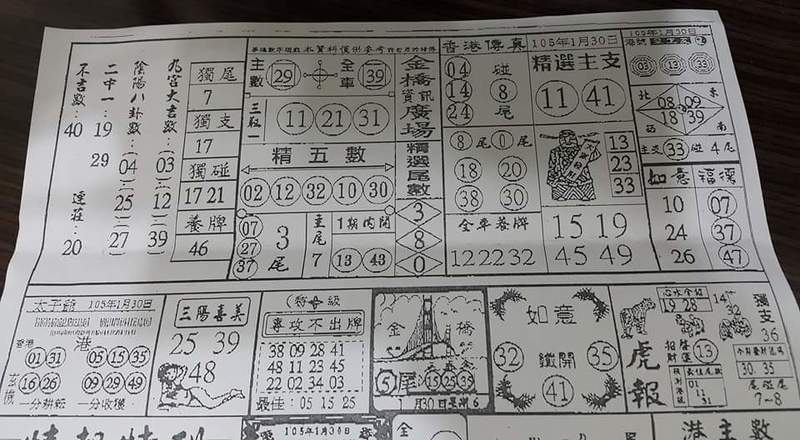 不言數：40 29 連莊：20
二中一：19
陰陽八卦數：04 25 27
九宮大吉數：03 12 39
獨尾
7
獨支
17
獨碰
17 21
養牌
46
本資料僅供參考
主數 29
全車 39
三粒
11 21 31
精五數
02 12 32 10 30
07
27
37
3
尾
主尾
7
1期內開
13 43
金橋資訊廣場
精選尾數
3
8
0
香港傳真
105年1月30日
04
14
24
碰
8
尾
8尾 0尾
18 20
38 30
全車養牌
12 22 32
精選主支
11 41
13
23
33
15 19
45 49
105年1月30日
03 13 33
北 東
08 09
18 39
西 南
主支 33 碰 4尾
如意 福德
10 07
24 37
26 47
太子爺 105年1月30日
香港 港
01 31 05 15 35
玄機
16 26 09 29 49
一分耕耘 一分收穫
三陽喜美
25 39
48
專攻不出牌
38 09 28 41
48 11 23 45
22 02 34 03
最佳：05 15 25
金橋
5尾 15 25 39
1月30日星期6
如意
32 鐵開 35
41
19 28
14
32
獨支
36
虎報
13
01
11
31
30. 35
尾碰尾
7～8
105年1月30日
港主數